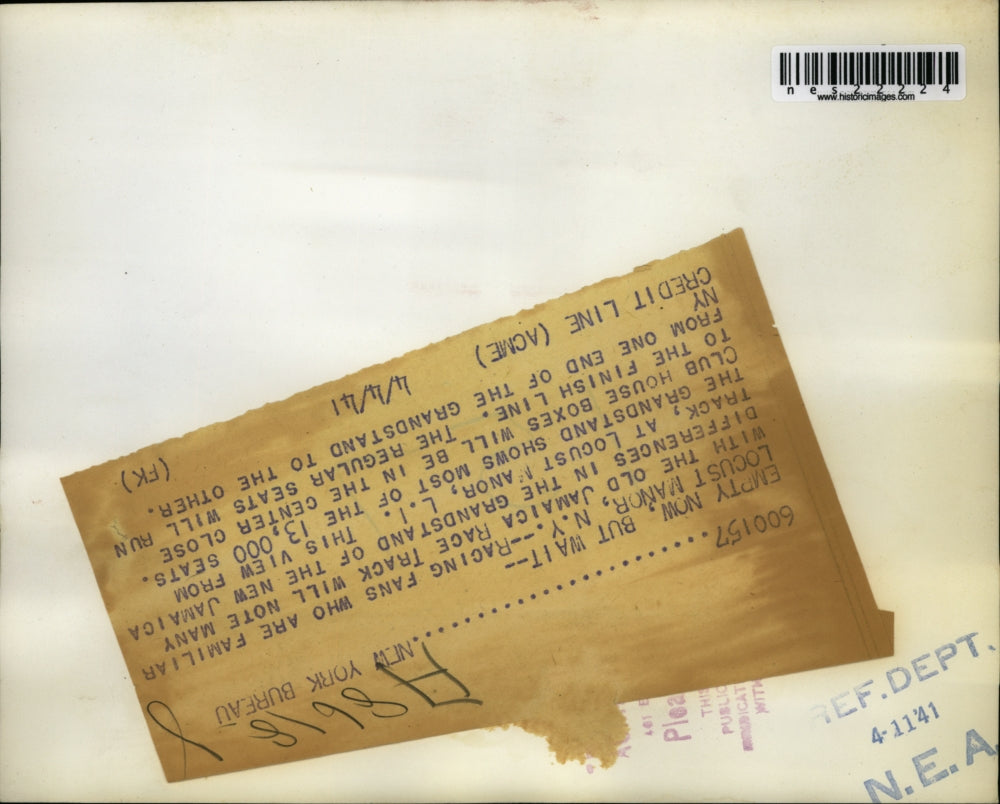 nes22224
www.historicimages.com
600157 ........................ NEW YORK BUREAU
EMPTY NOW, BUT WAIT--
LOCUST MANOR, N.Y.--RACING FANS WHO ARE FAMILIAR
WITH THE OLD JAMAICA RACE TRACK WILL NOTE MANY
DIFFERENCES IN THE GRANDSTAND OF THE NEW JAMAICA
TRACK, AT LOCUST MANOR, L.I. THIS VIEW FROM
THE GRANDSTAND SHOWS MOST OF THE 13,000 SEATS.
CLUB HOUSE BOXES WILL BE IN THE CENTER CLOSE
TO THE FINISH LINE. THE REGULAR SEATS WILL RUN
FROM ONE END OF THE GRANDSTAND TO THE OTHER.
NY
CREDIT LINE (ACME) 4/4/41 (FK)
REF. DEPT.
4-11'41
N.E.A